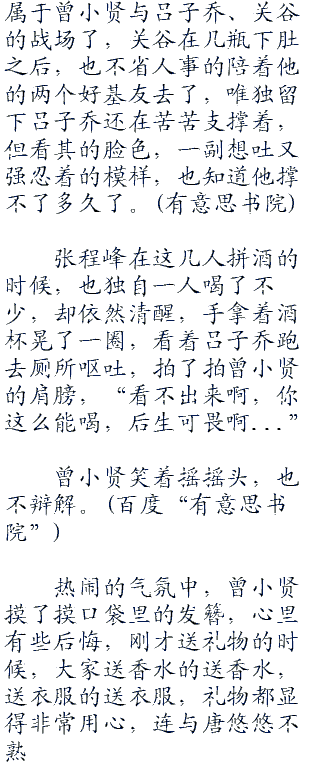 属于曾小贤与吕子乔、关谷
的战场了，关谷在几瓶下肚
之后，也不省人事的陪着他
的两个好基友去了，唯独留
下吕子乔还在苦苦支撑着，
但看其的脸色，一副想吐又
强忍着的模样，也知道他撑
不了多久了。(有意思书院)
张程峰在这几人拼酒的
时候，也独自一人喝了不
少，却依然清醒，手拿着酒
杯晃了一圈，看着吕子乔跑
去厕所呕吐，拍了拍曾小贤
的肩膀，“看不出来啊，你
这么能喝，后生可畏啊...”
曾小贤笑着摇摇头，也
不辩解。(百度“有意思书
院”)
热闹的气氛中，曾小贤
摸了摸口袋里的发簪，心里
有些后悔，刚才送礼物的时
候，大家送香水的送香水，
送衣服的送衣服，礼物都显
得非常用心，连与唐悠悠不
熟